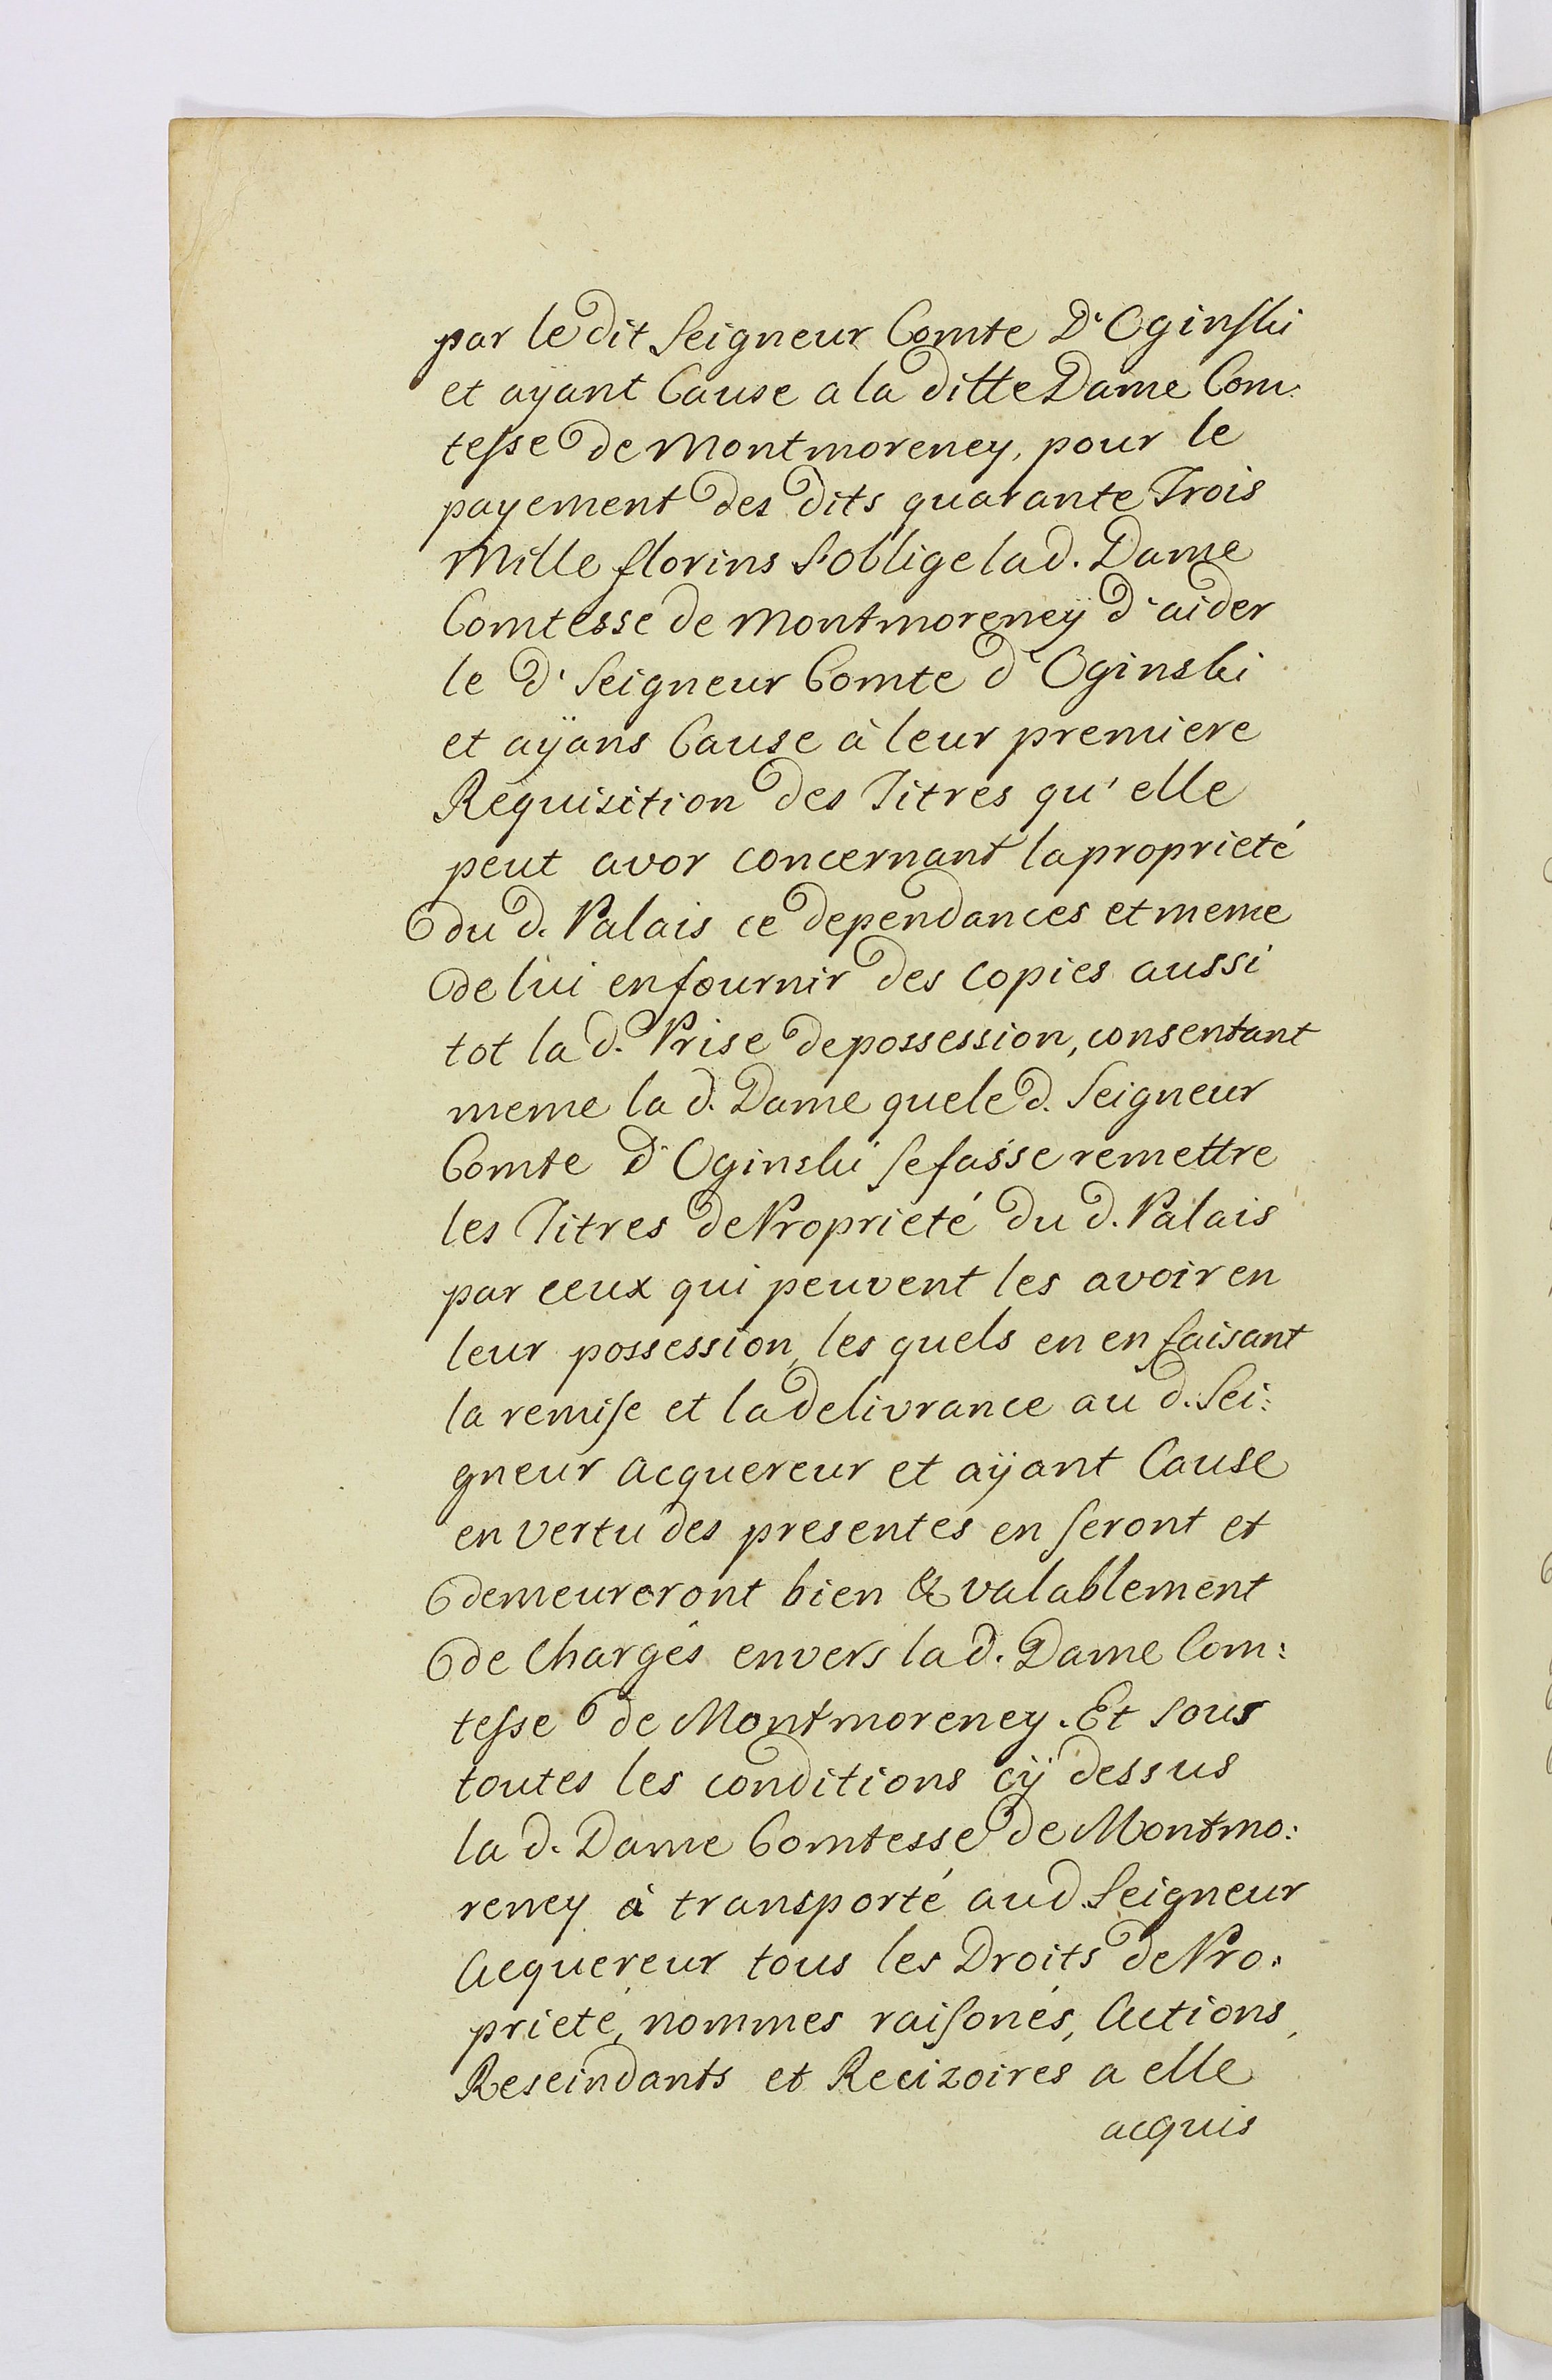 par le dit Seigneur Comte D'Oginski
et aÿant Cause a la ditte Dame Com:
tesse de Montmoreney, pour le
payement des dits quarante Trois
Mille florins s'oblige la d. Dame
Comtesse de Montmoreneÿ d'aider
le d. Seigneur Comte d'Oginski
et aÿans Cause à leur premiere
Requisition des Titres qu'elle
peut avor concernant la proprieté
du d. Palais ce dependances et meme
de lui en fournir des Copies aussi
tot la d. Prise de possession, consentant
meme la d. Dame que le d. Seigneur
Comte d'Oginski se fasse remettre
les Titres de Proprieté du d. Palais
par ceux qui peuvent les avoir en
leur possession, les quels en en faisant
la remise et la delivrance au d. Sei:
gneur acquereur et aÿant Cause
en vertu des presentes en seront et
demeureront bien & valablement
de Chargés envers la d. Dame Com:
tesse de Montmoreney. Et sous
toutes les conditions cÿ dessus
la d. Dame Comtesse de Montmo:
reney à transporté au d. Seigneur
Acquereur tous les Droits de Pro:
prieté, nommes raisonés, Actions,
Reseindants et Recizoires a elle
acquis